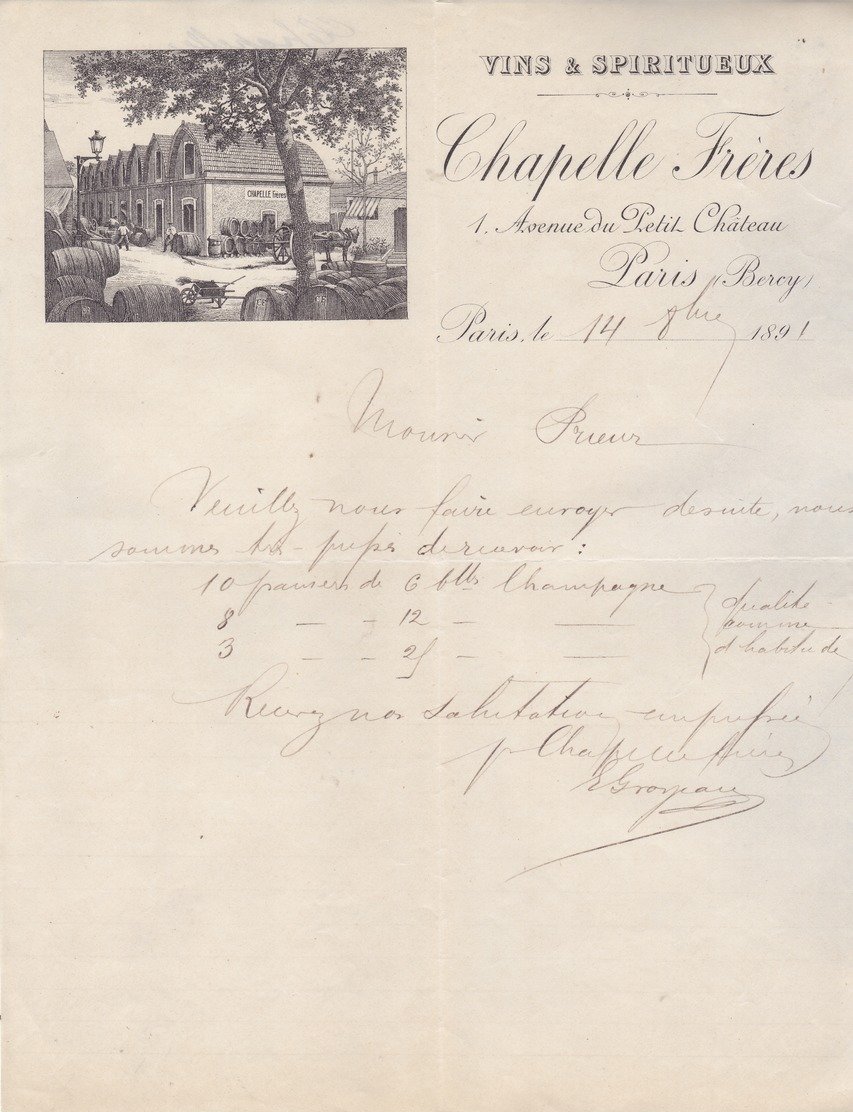 CHAPELLE Frères
VINS & SPIRITUEUX
Chapelle Frères
1, Avenue du Petit Château
Paris (Bercy)
Paris, le 14 8bre 1891
Monsieur Prieur
Veuillez nous faire envoyer desuite, nous
sommes très pressés de recevoir :
10 paniers de 6 blls Champagne
8 — - 12 - —
3 — - 25 - —
qualité
comme
d'habitude
Recevez nos salutations empressées
pr Chapelle frères
EGrosjean